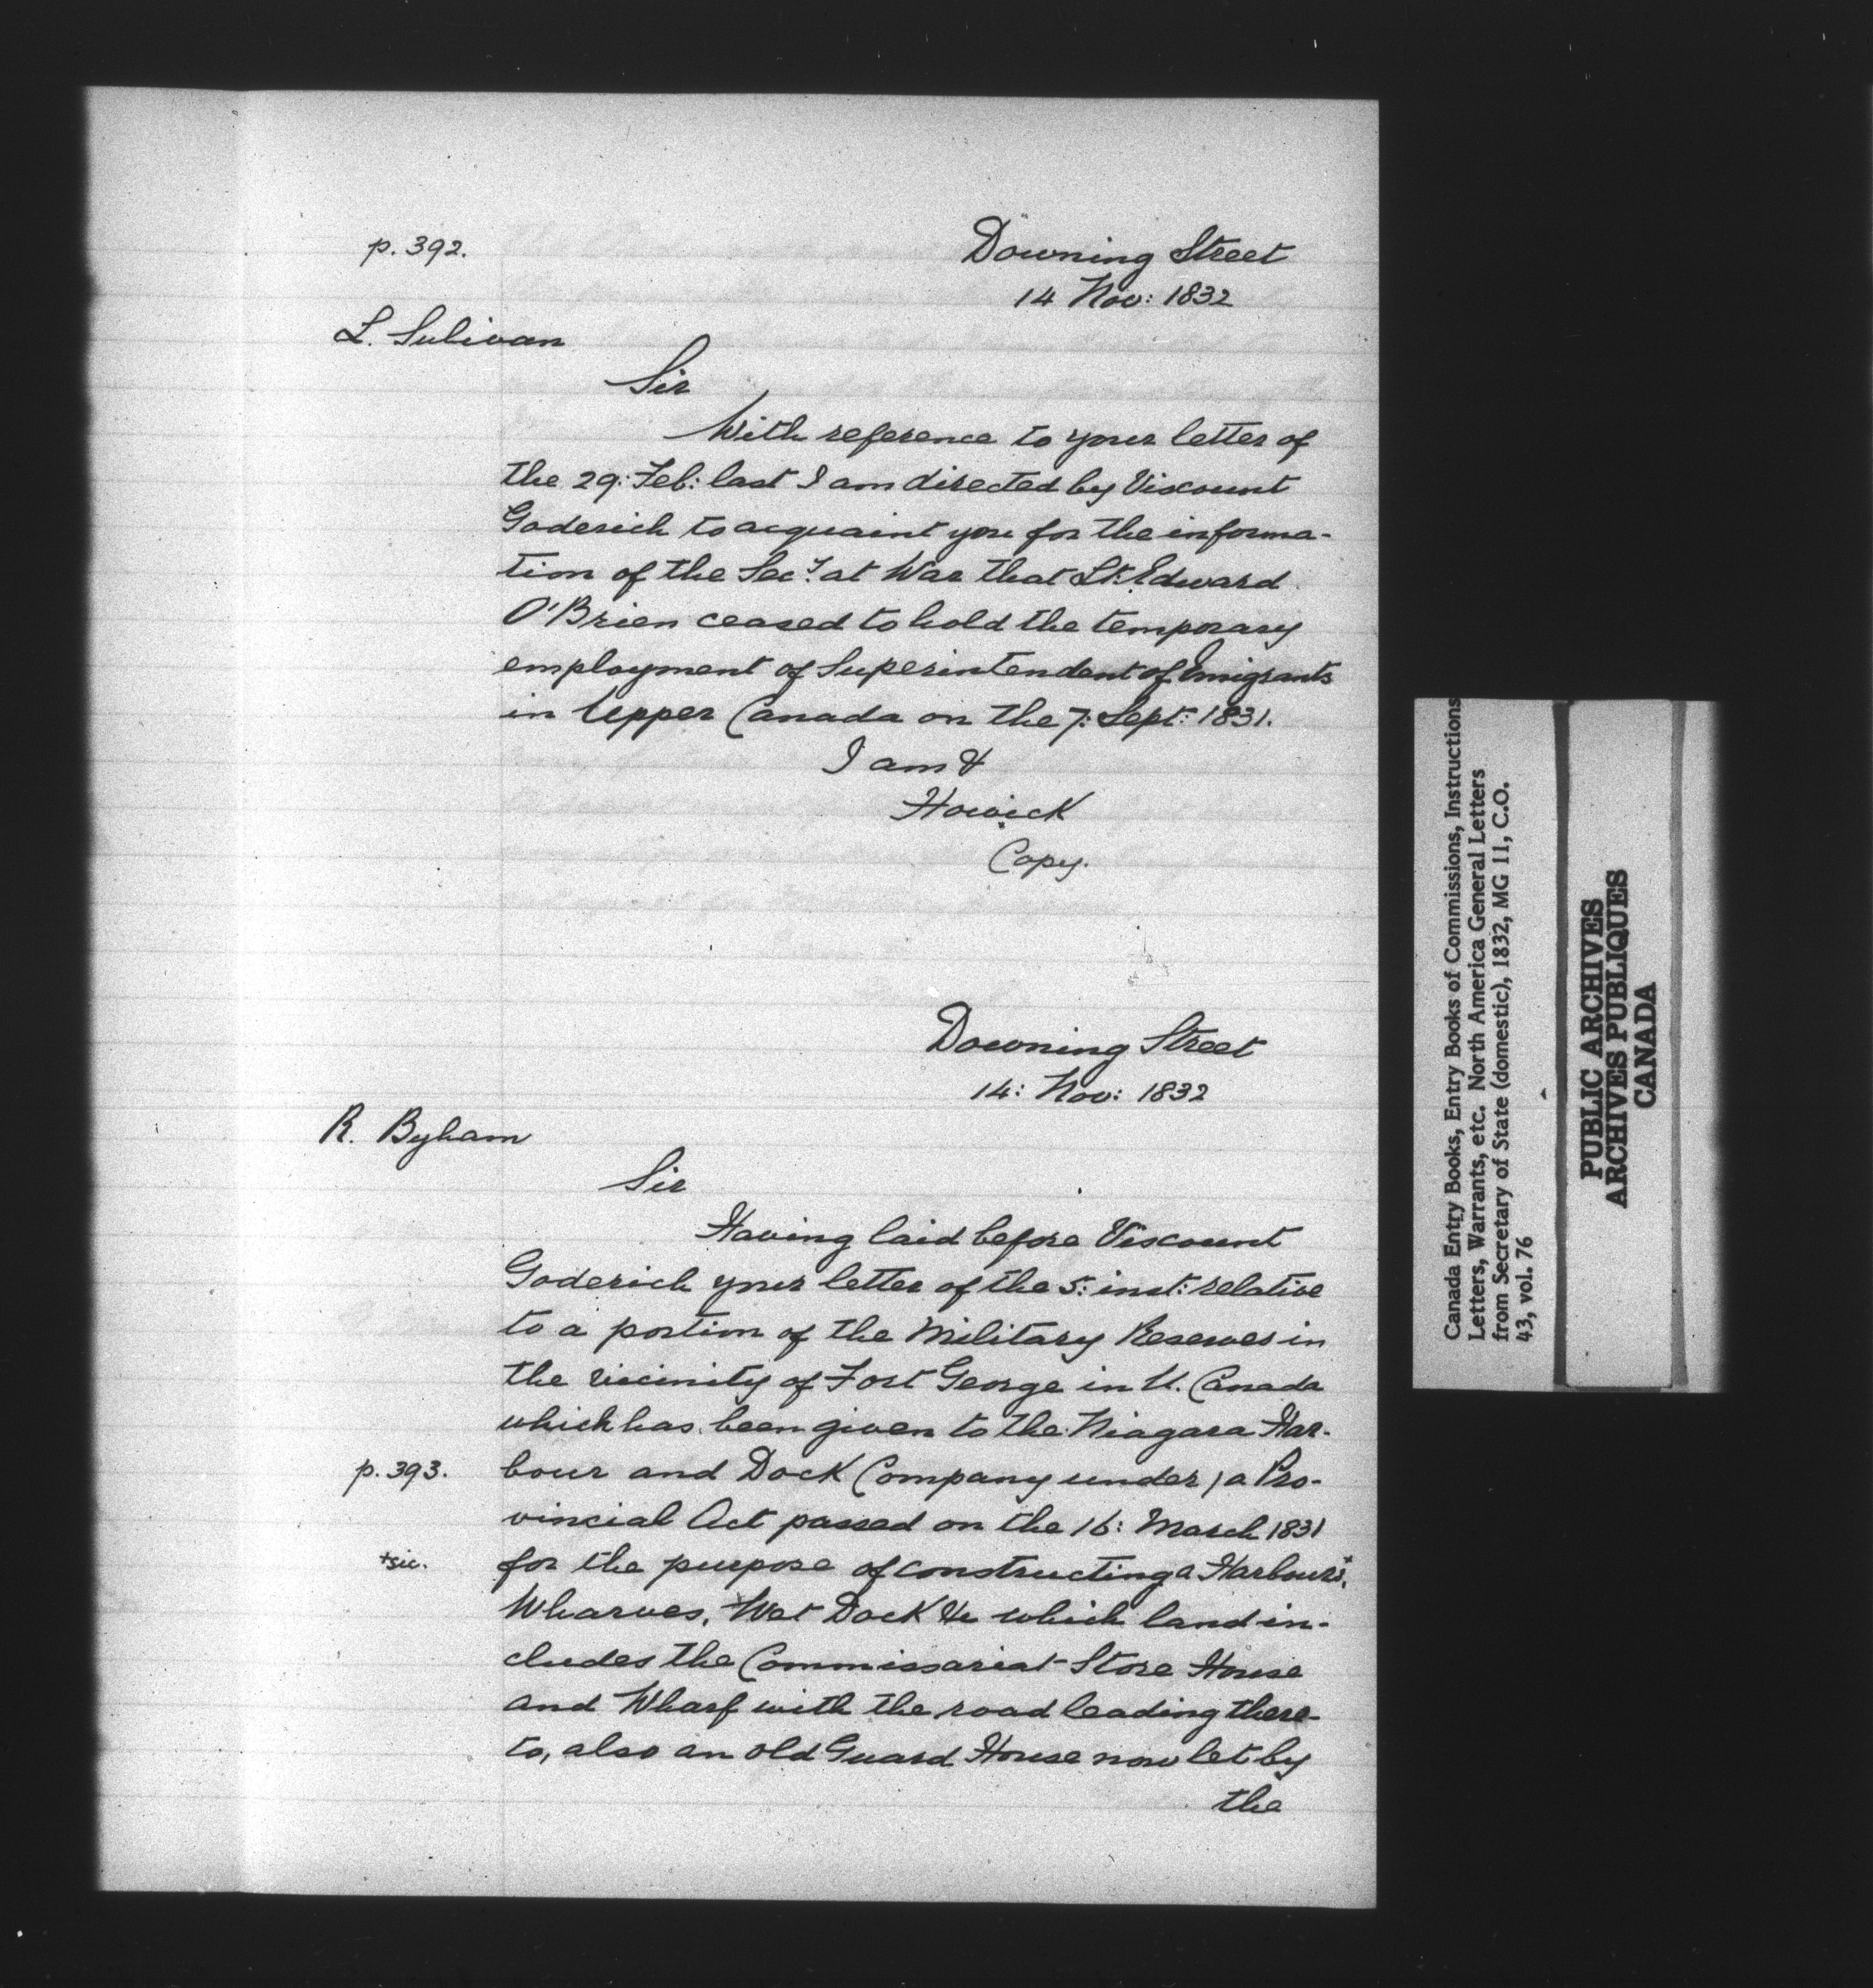 p. 392.
Downing Street
14 Nov: 1832
L. Sulivan
Sir
With reference to your letter of
the 29: Feb: last I am directed by Viscount
Goderich to acquaint you for the informa-
tion of the Secy. at War that Lt. Edward
O'Brien ceased to hold the temporary
employment of Superintendent of Emigrants
in Upper Canada on the 7: Sept: 1831.
I am &
Howick
Copy.
Downing Street
14: Nov: 1832
R. Byham
Sir
Having laid before Viscount
Goderich your letter of the 5: inst: relative
to a portion of the Military Reserves in
the vicinity of Fort George in U. Canada
which has been given to the Niagara Har-
p. 393. bour and Dock Company under / a Pro-
vincial Act passed on the 16: March 1831
+sic. for the purpose of constructing a Harbours+,
Wharves, Wet Dock &c which land in-
cludes the Commissariat Store House
and Wharf with the road leading there-
to, also an old Guard House now let by
the
Canada Entry Books, Entry Books of Commissions, Instructions
Letters, Warrants, etc. North America General Letters
from Secretary of State (domestic), 1832, MG 11, C.O.
43, vol. 76
PUBLIC ARCHIVES
ARCHIVES PUBLIQUES
CANADA